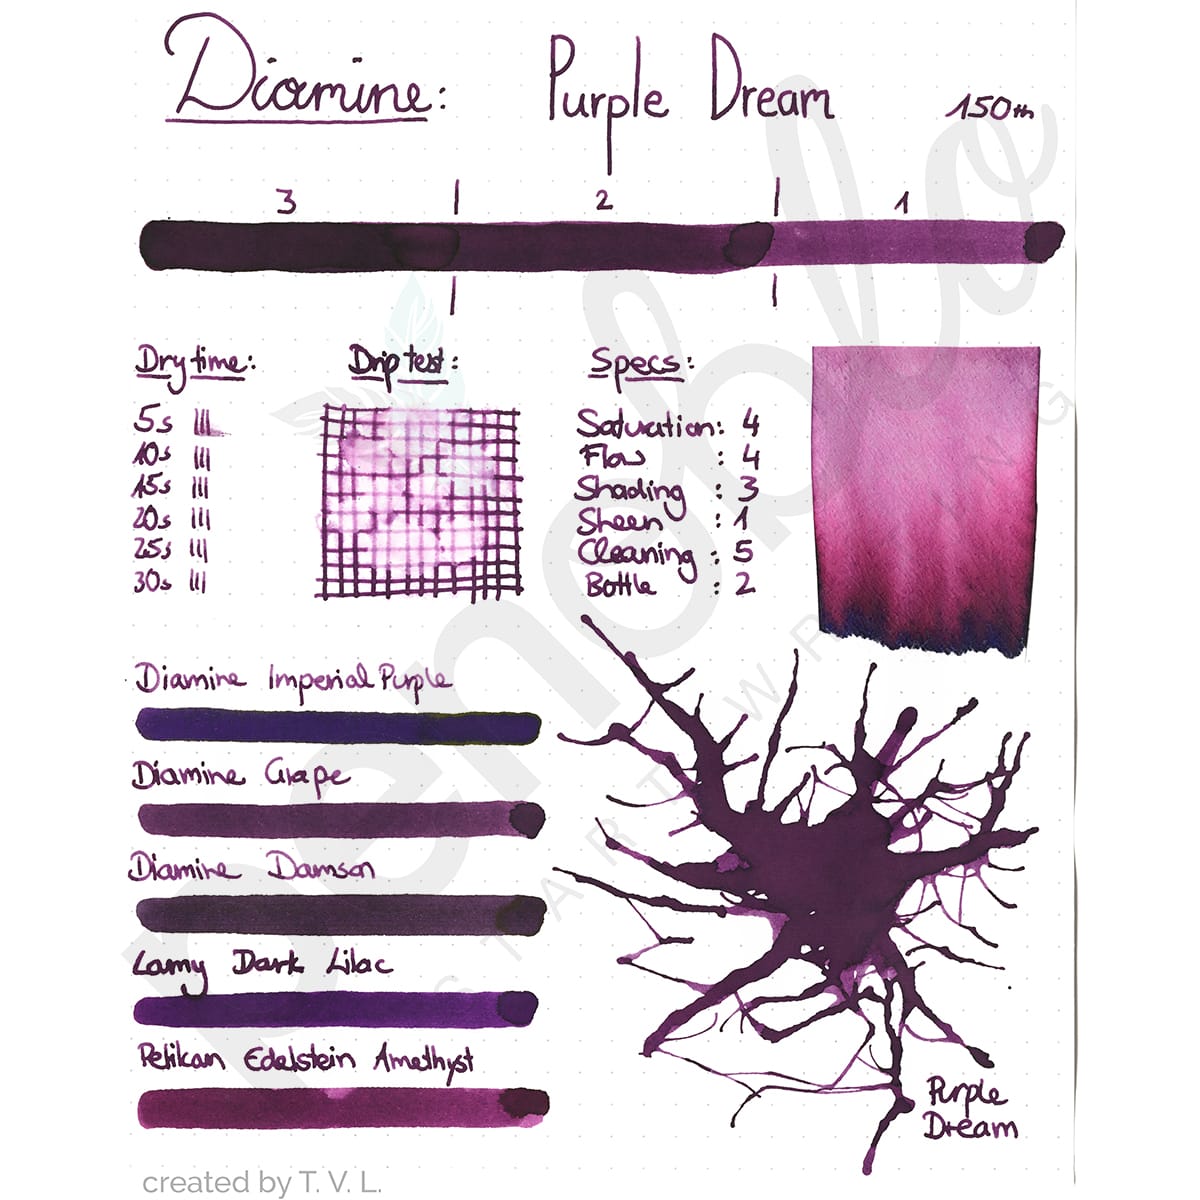 Diamine: Purple Dream 150th
3 2 1
Dry time:
5s
10s
15s
20s
25s
30s
Drip test:
Specs:
Saturation: 4
Flow : 4
Shading : 3
Sheen : 1
Cleaning : 5
Bottle : 2
Diamine Imperial Purple
Diamine Grape
Diamine Damson
Lamy Dark Lilac
Pelikan Edelstein Amethyst
Purple
Dream
created by T. V. L.
penoblo
START WRITING